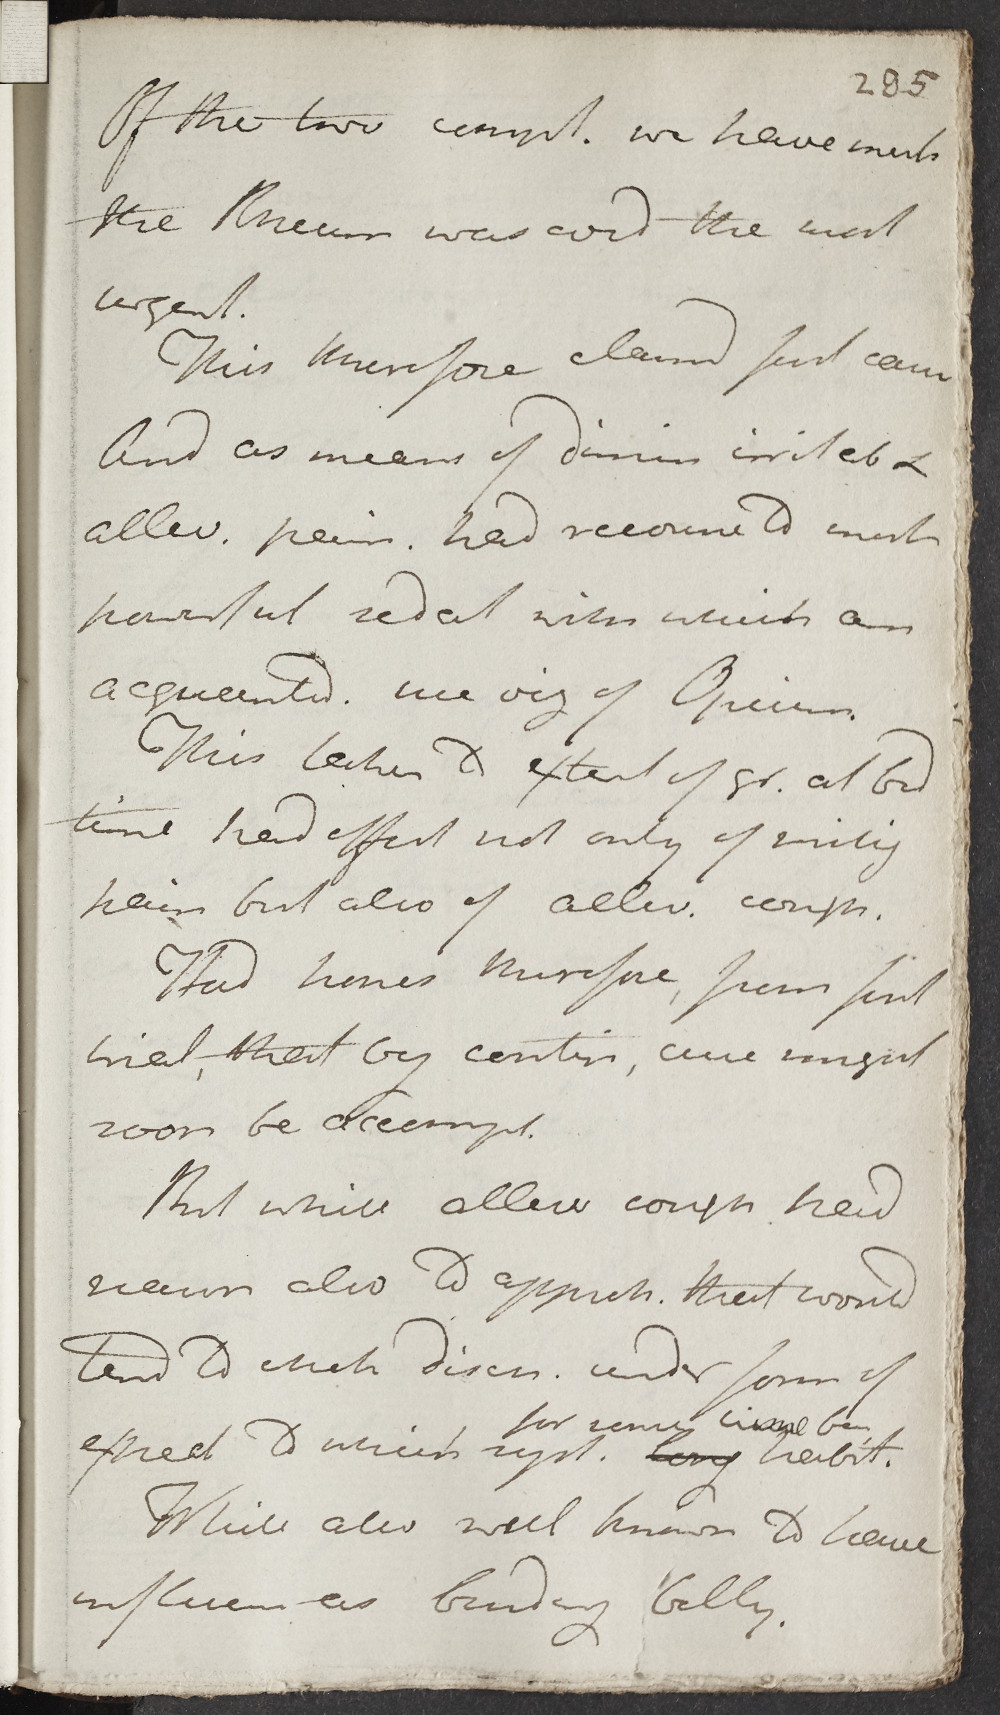 285
Of the two compl. we have ment
the Rheum was cons'd the most
urgent.
This therefore claimd first
And as means of dimin irritab &
allev. pain. had recourse to most
powerful sedat with which am
acquainted. use viz of Opium.
This taken to extent of gr. at bed
time had effect not only of mitig
pain but also of allev. cough.
Had hopes therefore, from first
trial, that by contin, cure might
soon be accompl.
But while allev cough had
reason also to appreh. that would
tend to check disch. under form of
for some time been
expect to which syst. long habit.
While also well known to have
influen as binding belly.